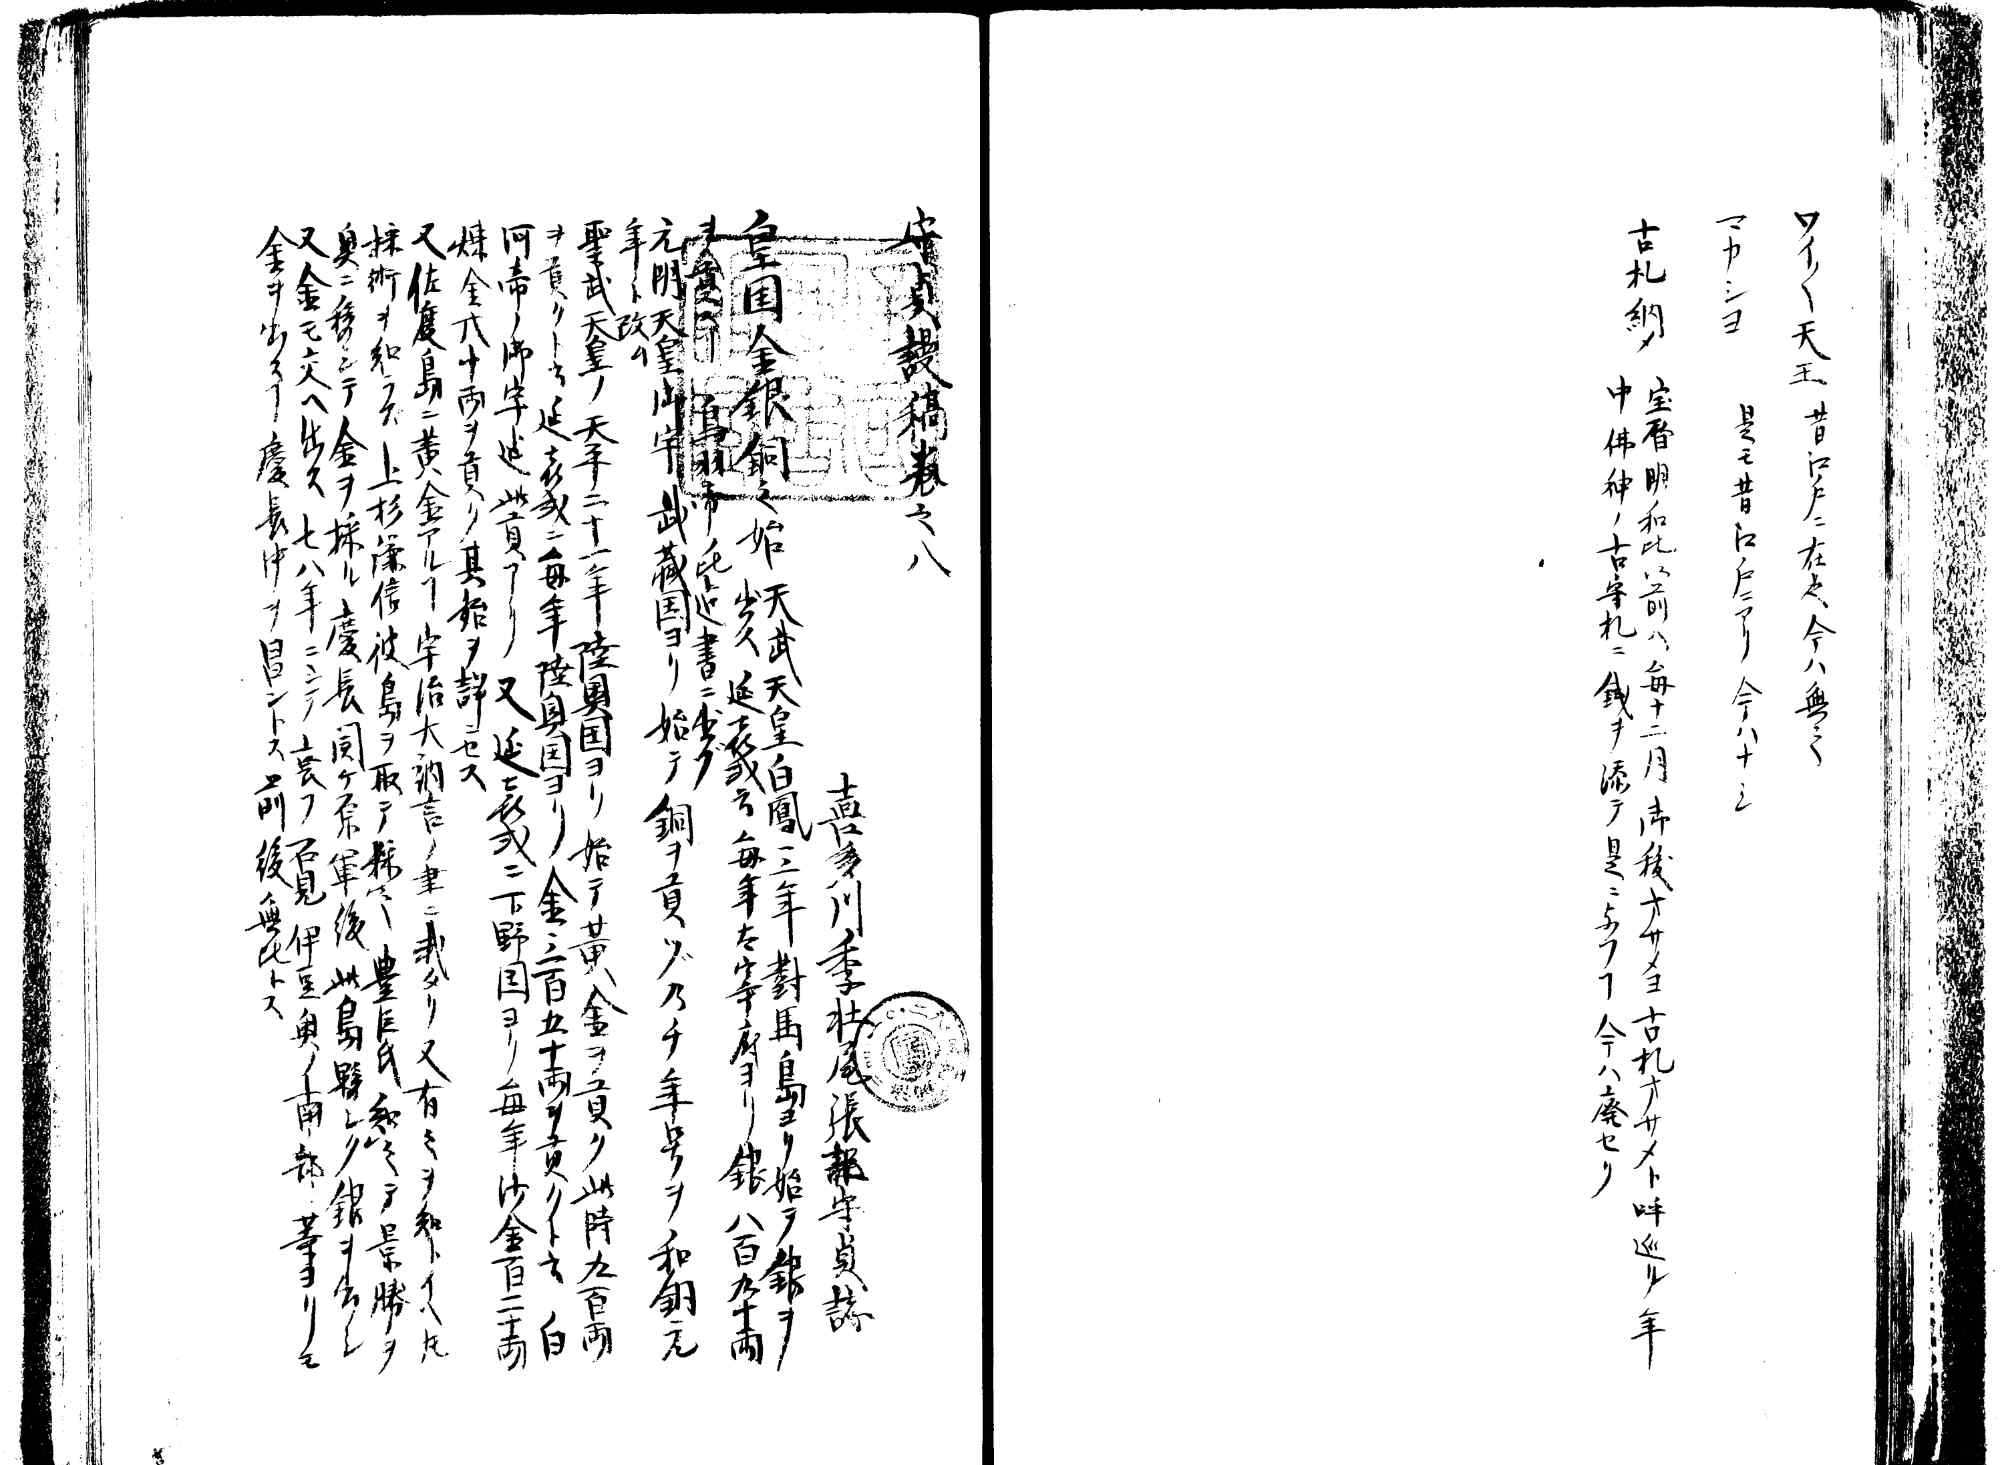 ワイ〱天王 昔江戸ニ在之今ハ無之
マカシヨ 是モ昔江戸ニアリ今ハナシ
古札納メ 宝暦明和比以前ハ毎十二月御祓オサメヨ古札オサメト呼巡リ年
中佛神ノ古守札ニ銭ヲ添テ是ニ与フヿ今ハ廃セリ
守貞謾稿巻之八
喜多川季荘尾張部守貞誌
皇国金銀銅之始 天武天皇白鳳三年對馬島ヨリ始テ銀ヲ
出ス延喜式云毎年太宰府ヨリ銀八百九十両
ヲ貢ス 鳥羽帝ノ比迄書ニ出グ
元明天皇御宇武藏国ヨリ始テ銅ヲ貢ツグ乃チ年号ヲ和銅元
年ト改ム
聖武天皇ノ天平二十一年陸奥国ヨリ始テ黄金ヲ貢ク此時九百両
ヲ貢クト云延喜式ニ毎年陸奥国ヨリ金三百五十両ヲ貢クト云白
河帝ノ御宇迄此貢アリ又延喜式ニ下野国ヨリ毎年沙金百二十両
煉金八十両ヲ貢ク其始ヲ詳ニセス
又佐度島ニ黄金アルヿ宇治大納言ノ書ニ載タリ又有ヿヲ知トイヘ𪜈
採術ヲ知ラズ上杉謙信彼島ヲ取テ採之豊臣氏 景勝ヲ
奥ニ移シテ金ヲ採ル慶長関ケ原軍後此島 銀ヲ出シ
又金モ交ヘ出ス七八年ニシテ衰フ石見伊豆奥ノ南部等ヨリモ
金ヲ出スヿ慶長中ヲ昌ントス前後無比トス